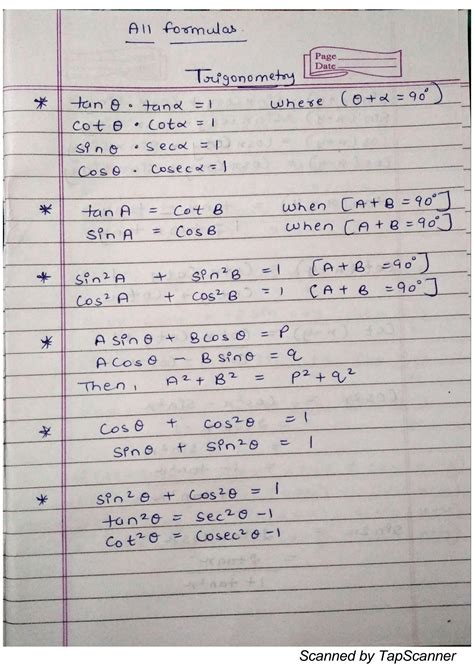 All formulas.
Page
Date
Trigonometry
* tan θ · tan α = 1 where (θ + α = 90°)
cot θ · cot α = 1
sin θ · sec α = 1
cos θ · cosec α = 1
* tan A = cot B when [A + B = 90°]
sin A = cos B when [A + B = 90°]
* sin²A + sin²B = 1 [A + B = 90°]
cos²A + cos²B = 1 [A + B = 90°]
* A sin θ + B cos θ = P
A cos θ - B sin θ = q
Then, A² + B² = P² + q²
* cos θ + cos²θ = 1
sin θ + sin²θ = 1
* sin²θ + cos²θ = 1
tan²θ = sec²θ - 1
cot²θ = cosec²θ - 1
Scanned by TapScanner